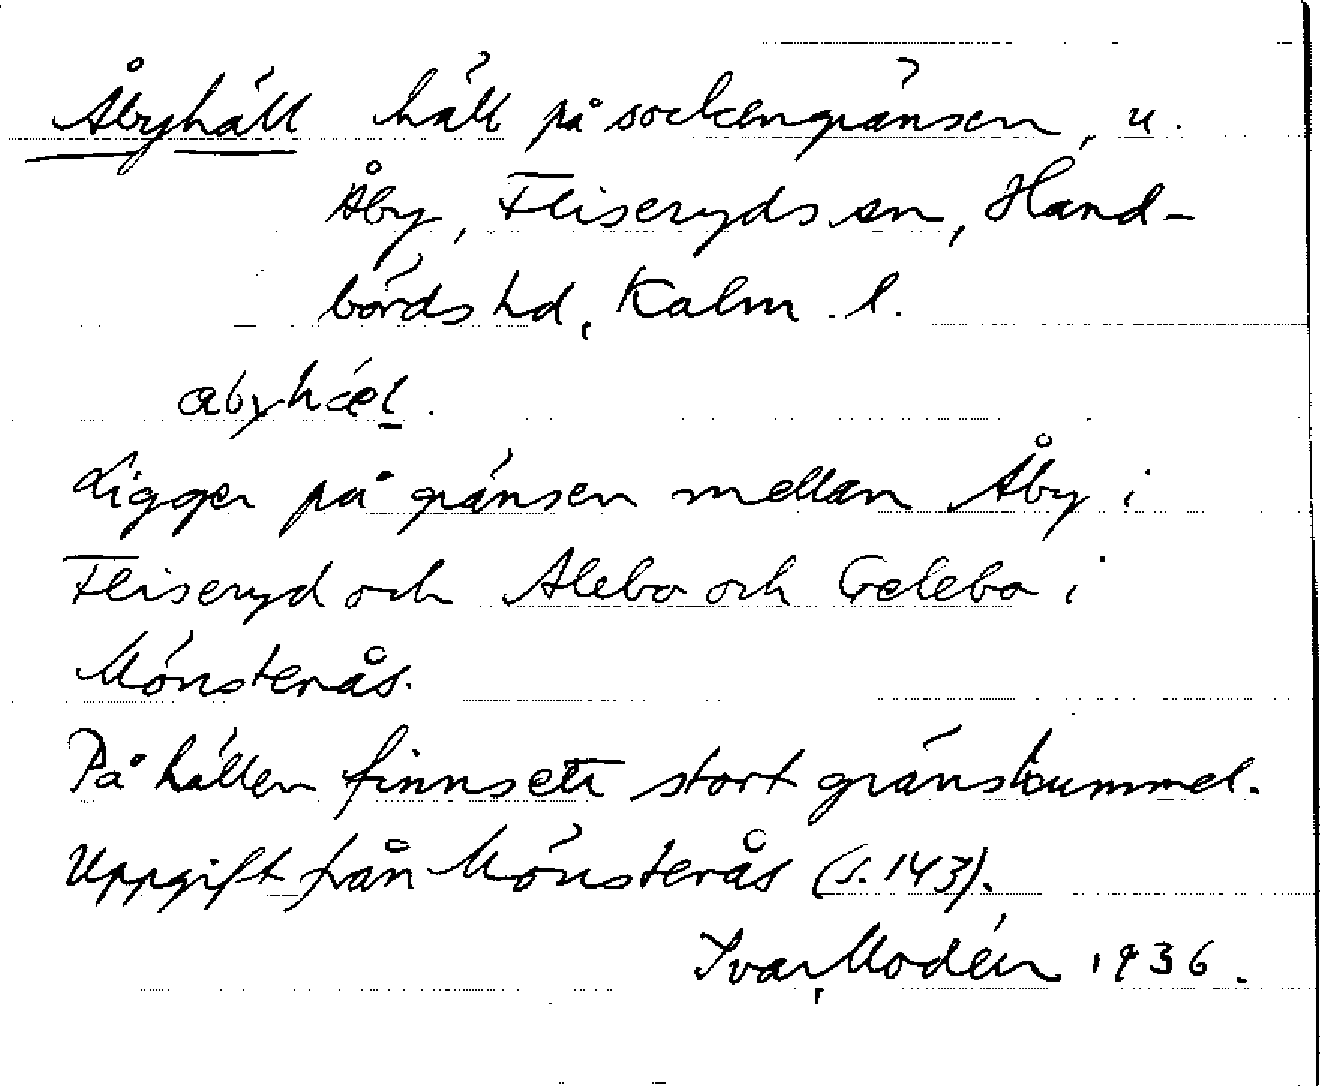 Åbyhäll häll på sockengränsen, u.
Åby, Fliseryds sn, Hand-
börds hd, Kalm. l.
abyhæl.
Ligger på gränsen mellan Åby i
Fliseryd och Alebo och Gelebo i
Mönsterås.
På hällen finns ett stort gränskummel.
Uppgift från Mönsterås (s. 143).
Ivar Modéer 1936.